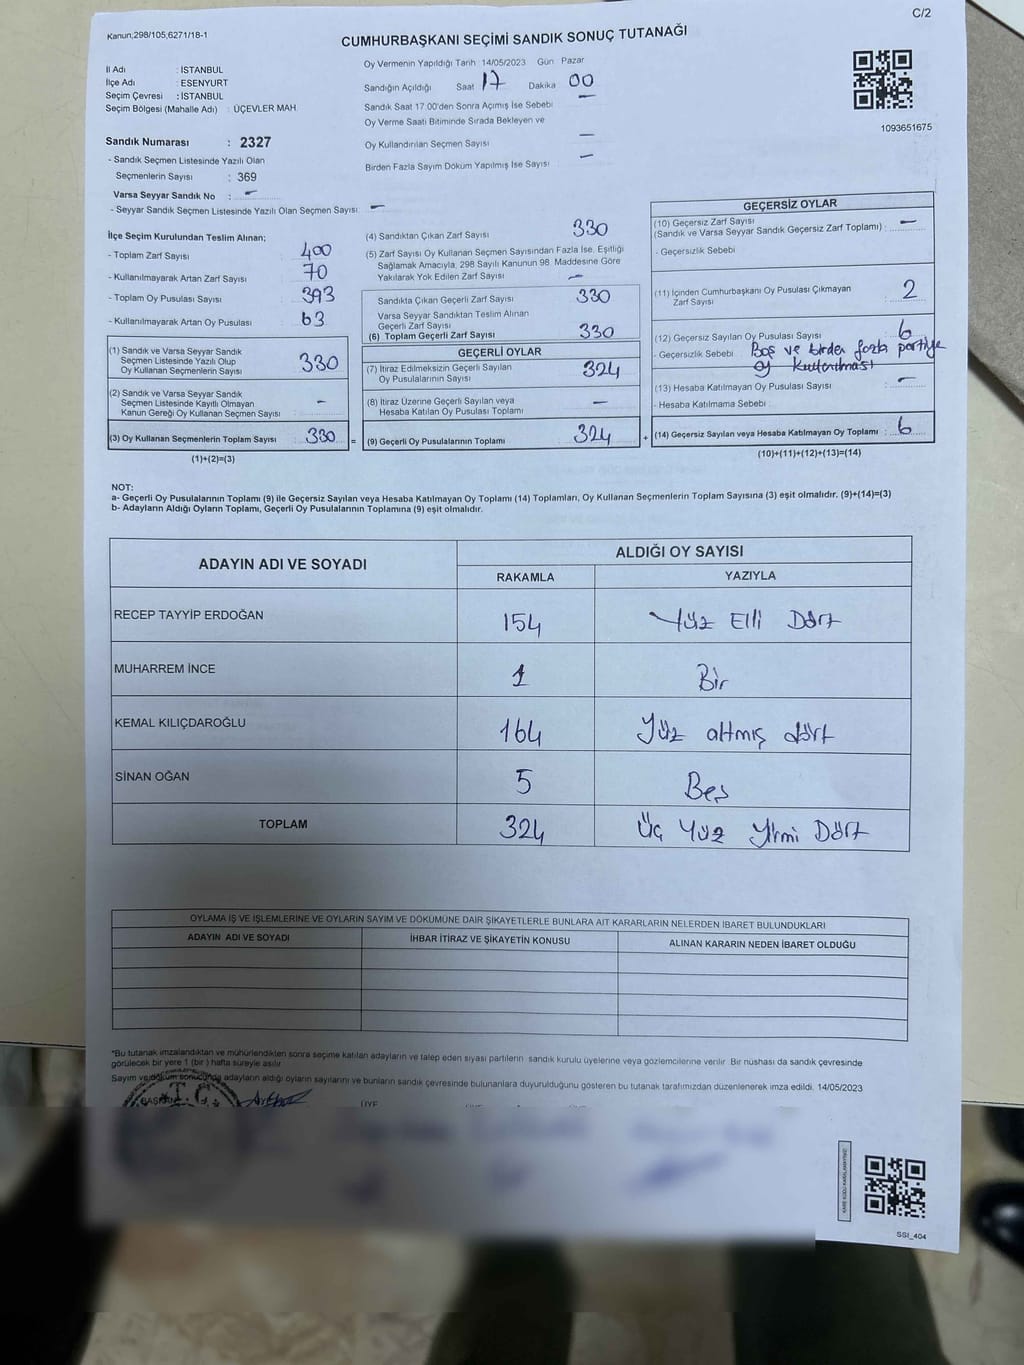 C/2
Kanun,298/105,6271/18-1
CUMHURBAŞKANI SEÇİMİ SANDIK SONUÇ TUTANAĞI
İl Adı : İSTANBUL
İlçe Adı : ESENYURT
Seçim Çevresi : İSTANBUL
Seçim Bölgesi (Mahalle Adı) : ÜÇEVLER MAH.
Oy Vermenin Yapıldığı Tarih 14/05/2023 Gün Pazar
Sandığın Açıldığı Saat 17 Dakika 00
Sandık Saat 17.00'den Sonra Açımış İse Sebebi —
Oy Verme Saati Bitiminde Sırada Bekleyen ve
Oy Kullandırılan Seçmen Sayısı —
Birden Fazla Sayım Döküm Yapılmış İse Sayısı —
1093651675
Sandık Numarası : 2327
- Sandık Seçmen Listesinde Yazılı Olan
Seçmenlerin Sayısı : 369
Varsa Seyyar Sandık No : —
- Seyyar Sandık Seçmen Listesinde Yazılı Olan Seçmen Sayısı: —
İlçe Seçim Kurulundan Teslim Alınan;
- Toplam Zarf Sayısı : 400
- Kullanılmayarak Artan Zarf Sayısı : 70
- Toplam Oy Pusulası Sayısı : 393
- Kullanılmayarak Artan Oy Pusulası : 63
(1) Sandık ve Varsa Seyyar Sandık
Seçmen Listesinde Yazılı Olup
Oy Kullanan Seçmenlerin Sayısı : 330
(2) Sandık ve Varsa Seyyar Sandık
Seçmen Listesinde Kayıtlı Olmayan
Kanun Gereği Oy Kullanan Seçmen Sayısı : -
(3) Oy Kullanan Seçmenlerin Toplam Sayısı : 330 =
(1)+(2)=(3)
(4) Sandıktan Çıkan Zarf Sayısı 330
(5) Zarf Sayısı Oy Kullanan Seçmen Sayısından Fazla İse, Eşitliği
Sağlamak Amacıyla, 298 Sayılı Kanunun 98. Maddesine Göre
Yakılarak Yok Edilen Zarf Sayısı —
Sandıkta Çıkan Geçerli Zarf Sayısı 330
Varsa Seyyar Sandıktan Teslim Alınan
Geçerli Zarf Sayısı
(6) Toplam Geçerli Zarf Sayısı 330
GEÇERLİ OYLAR
(7) İtiraz Edilmeksizin Geçerli Sayılan
Oy Pusulalarının Sayısı 324
(8) İtiraz Üzerine Geçerli Sayılan veya
Hesaba Katılan Oy Pusulası Toplamı —
(9) Geçerli Oy Pusulalarının Toplamı 324 +
GEÇERSİZ OYLAR
(10) Geçersiz Zarf Sayısı
(Sandık ve Varsa Seyyar Sandık Geçersiz Zarf Toplamı) : —
- Geçersizlik Sebebi
(11) İçinden Cumhurbaşkanı Oy Pusulası Çıkmayan
Zarf Sayısı : 2
(12) Geçersiz Sayılan Oy Pusulası Sayısı : 6
- Geçersizlik Sebebi : Boş ve birden fazla partiye
oy kullanılması
(13) Hesaba Katılmayan Oy Pusulası Sayısı : —
- Hesaba Katılmama Sebebi :
(14) Geçersiz Sayılan veya Hesaba Katılmayan Oy Toplamı : 6
(10)+(11)+(12)+(13)=(14)
NOT:
a- Geçerli Oy Pusulalarının Toplamı (9) ile Geçersiz Sayılan veya Hesaba Katılmayan Oy Toplamı (14) Toplamları, Oy Kullanan Seçmenlerin Toplam Sayısına (3) eşit olmalıdır. (9)+(14)=(3)
b- Adayların Aldığı Oyların Toplamı, Geçerli Oy Pusulalarının Toplamına (9) eşit olmalıdır.
ADAYIN ADI VE SOYADI
ALDIĞI OY SAYISI
RAKAMLA YAZIYLA
RECEP TAYYİP ERDOĞAN 154 Yüz Elli Dört
MUHARREM İNCE 1 Bir
KEMAL KILIÇDAROĞLU 164 Yüz altmış dört
SİNAN OĞAN 5 Beş
TOPLAM 324 Üç Yüz Yirmi Dört
OYLAMA İŞ VE İŞLEMLERİNE VE OYLARIN SAYIM VE DÖKÜMÜNE DAİR ŞİKAYETLERLE BUNLARA AİT KARARLARIN NELERDEN İBARET BULUNDUKLARI
ADAYIN ADI VE SOYADI İHBAR İTİRAZ VE ŞİKAYETİN KONUSU ALINAN KARARIN NEDEN İBARET OLDUĞU
*Bu tutanak imzalandıktan ve mühürlendikten sonra seçime katılan adayların ve talep eden siyasi partilerin sandık kurulu üyelerine veya gözlemcilerine verilir. Bir nüshası da sandık çevresinde
görülecek bir yere 1 (bir) hafta süreyle asılır.
Sayım ve döküm sonucunda adayların aldığı oyların sayılarını ve bunların sandık çevresinde bulunanlara duyurulduğunu gösteren bu tutanak tarafımızdan düzenlenerek imza edildi. 14/05/2023
BAŞKAN ÜYE
T.C.
SSI_404